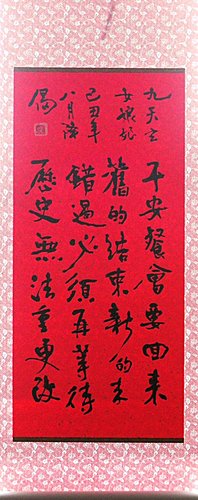 九天玄
女娘娘
己丑年
八月降
偈
平安餐會要回來
舊的結束新的來
錯過必須再等待
歷史無法重更改